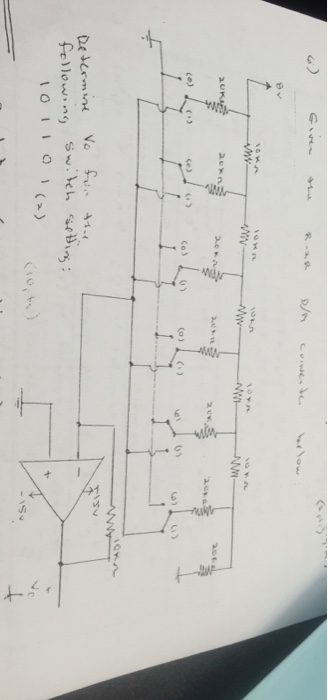 6) Given the R-2R D/A converter below
8v
10KΩ 10KΩ 10KΩ 10KΩ 10KΩ
20KΩ 20KΩ 20KΩ 20KΩ 20KΩ 20KΩ 20KΩ
(0) (1) (0) (1) (0) (1) (0) (1) (0) (1) (0) (1)
10KΩ
- +15v
+ -15v
+
Vo
Determine Vo for the
following switch setting:
1 0 1 1 0 1 (2)